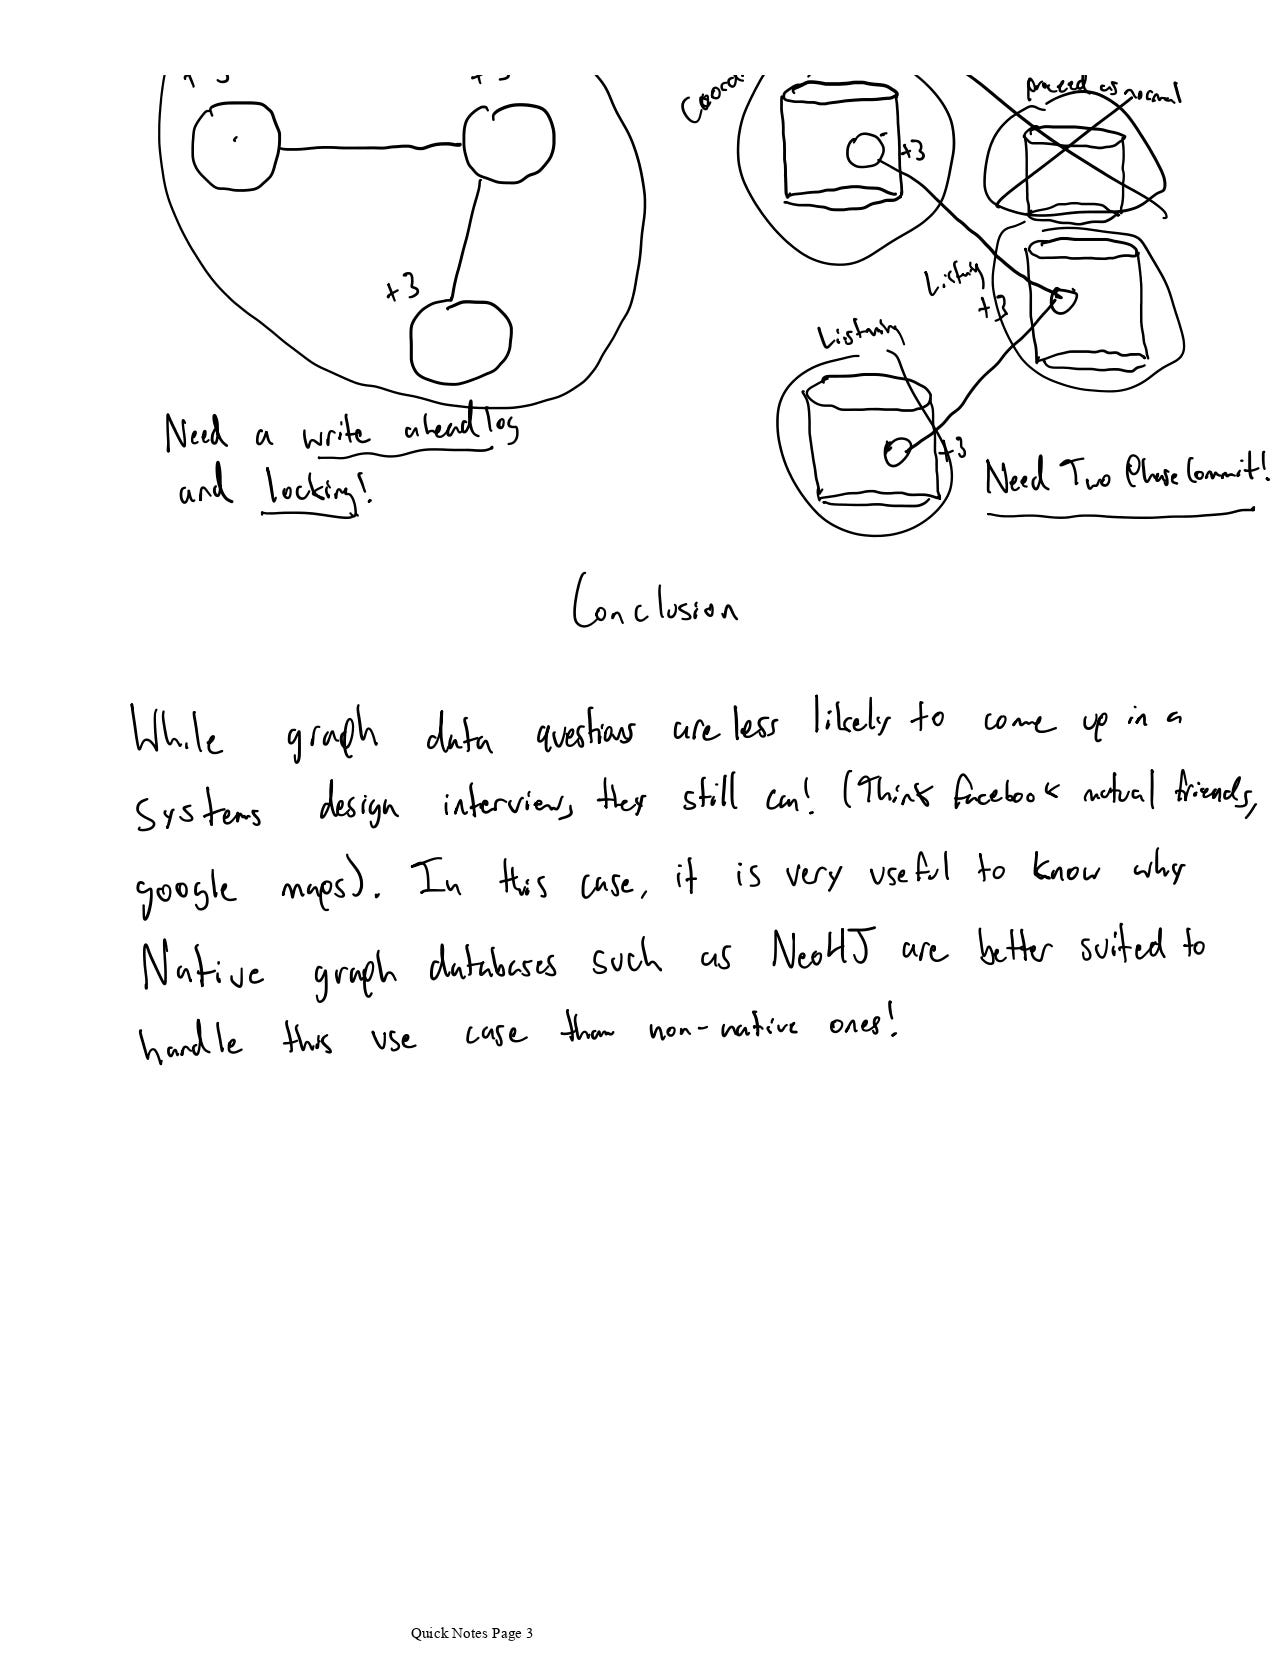 proceed as normal
+3
+3
+3
Listening
+3
Listening
+3
Need a write ahead log
and locking!
Need Two Phase Commit!
Conclusion
While graph data questions are less likely to come up in a
systems design interview, they still can! (Think facebook mutual friends,
google maps). In this case, it is very useful to know why
Native graph databases such as Neo4J are better suited to
handle this use case than non-native ones!
Quick Notes Page 3